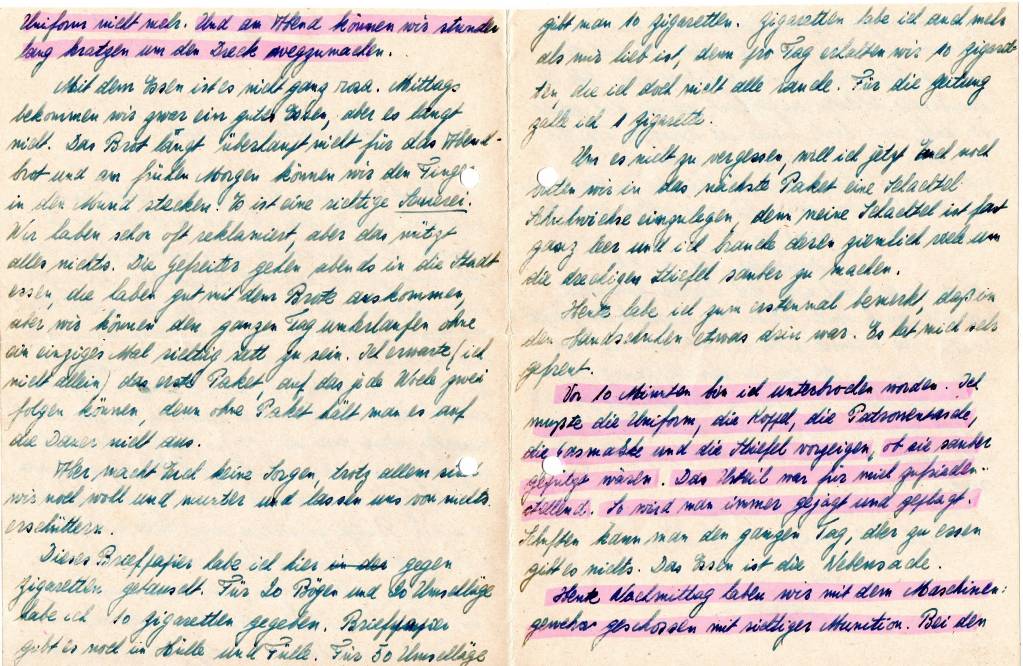 Uniform nicht mehr. Und am Abend können wir stunden
lang kratzen um den Dreck wegzumachen.
Mit dem Essen ist es nicht ganz rosa. Mittags
bekommen wir zwar ein gutes Essen, aber es langt
nicht. Das Brot längt überhaupt nicht für das Abend-
brot und am frühen Morgen können wir den Finger
in den Mund stecken. Es ist eine richtige Sauerei.
Wir haben schon oft reklamiert, aber das nützt
alles nichts. Die Gefreiter gehen abends in die Stadt
essen, die haben gut mit dem Brote auskommen,
aber wir können den ganzen Tag umherlaufen ohne
ein einziges Mal richtig satt zu sein. Ich erwarte (ich
nicht allein) das erste Paket, auf das jede Woche zwei
folgen können, denn ohne Paket hält man es auf
die Dauer nicht aus.
Aber macht Euch keine Sorgen, trotz allem sind
wir noch wohl und munter und lassen uns von nichts
erschüttern.
Dieses Briefpapier habe ich hier in der gegen
Zigaretten getauscht. Für 20 Bögen und 20 Umschläge
habe ich 10 Zigaretten gegeben. Briefpapier
gibt es noch in Hülle und Fülle. Für 50 Umschläge
gibt man 10 Zigaretten. Zigaretten habe ich auch mehr
als mir lieb ist, denn pro Tag erhalten wir 10 Zigaret-
ten, die ich doch nicht alle rauche. Für die Zeitung
zahle ich 1 Zigarette.
Um es nicht zu vergessen, will ich jetzt Euch noch
bitten mir in das nächste Paket eine Schachtel
Schuhwichse einzulegen, denn meine Schachtel ist fast
ganz leer und ich brauche deren ziemlich viel um
die dreckigen Stiefel sauber zu machen.
Heute habe ich zum erstenmal bemerkt, daß in
den Handschuhen etwas drin war. Es hat mich sehr
gefreut.
Vor 10 Minuten bin ich unterbrochen worden. Ich
mußte die Uniform, die Koppel, die Patronentasche,
die Gasmaske und die Stiefel vorzeigen, ob sie sauber
geputzt wären. Das Urteil war für mich zufrieden-
stellend. So wird man immer gejagt und geplagt.
Schuften kann man den ganzen Tag, aber zu essen
gibt es nichts. Das Essen ist die Nebensache.
Heute Nachmittag haben wir mit dem Maschinen-
gewehr geschossen mit richtiger Munition. Bei den